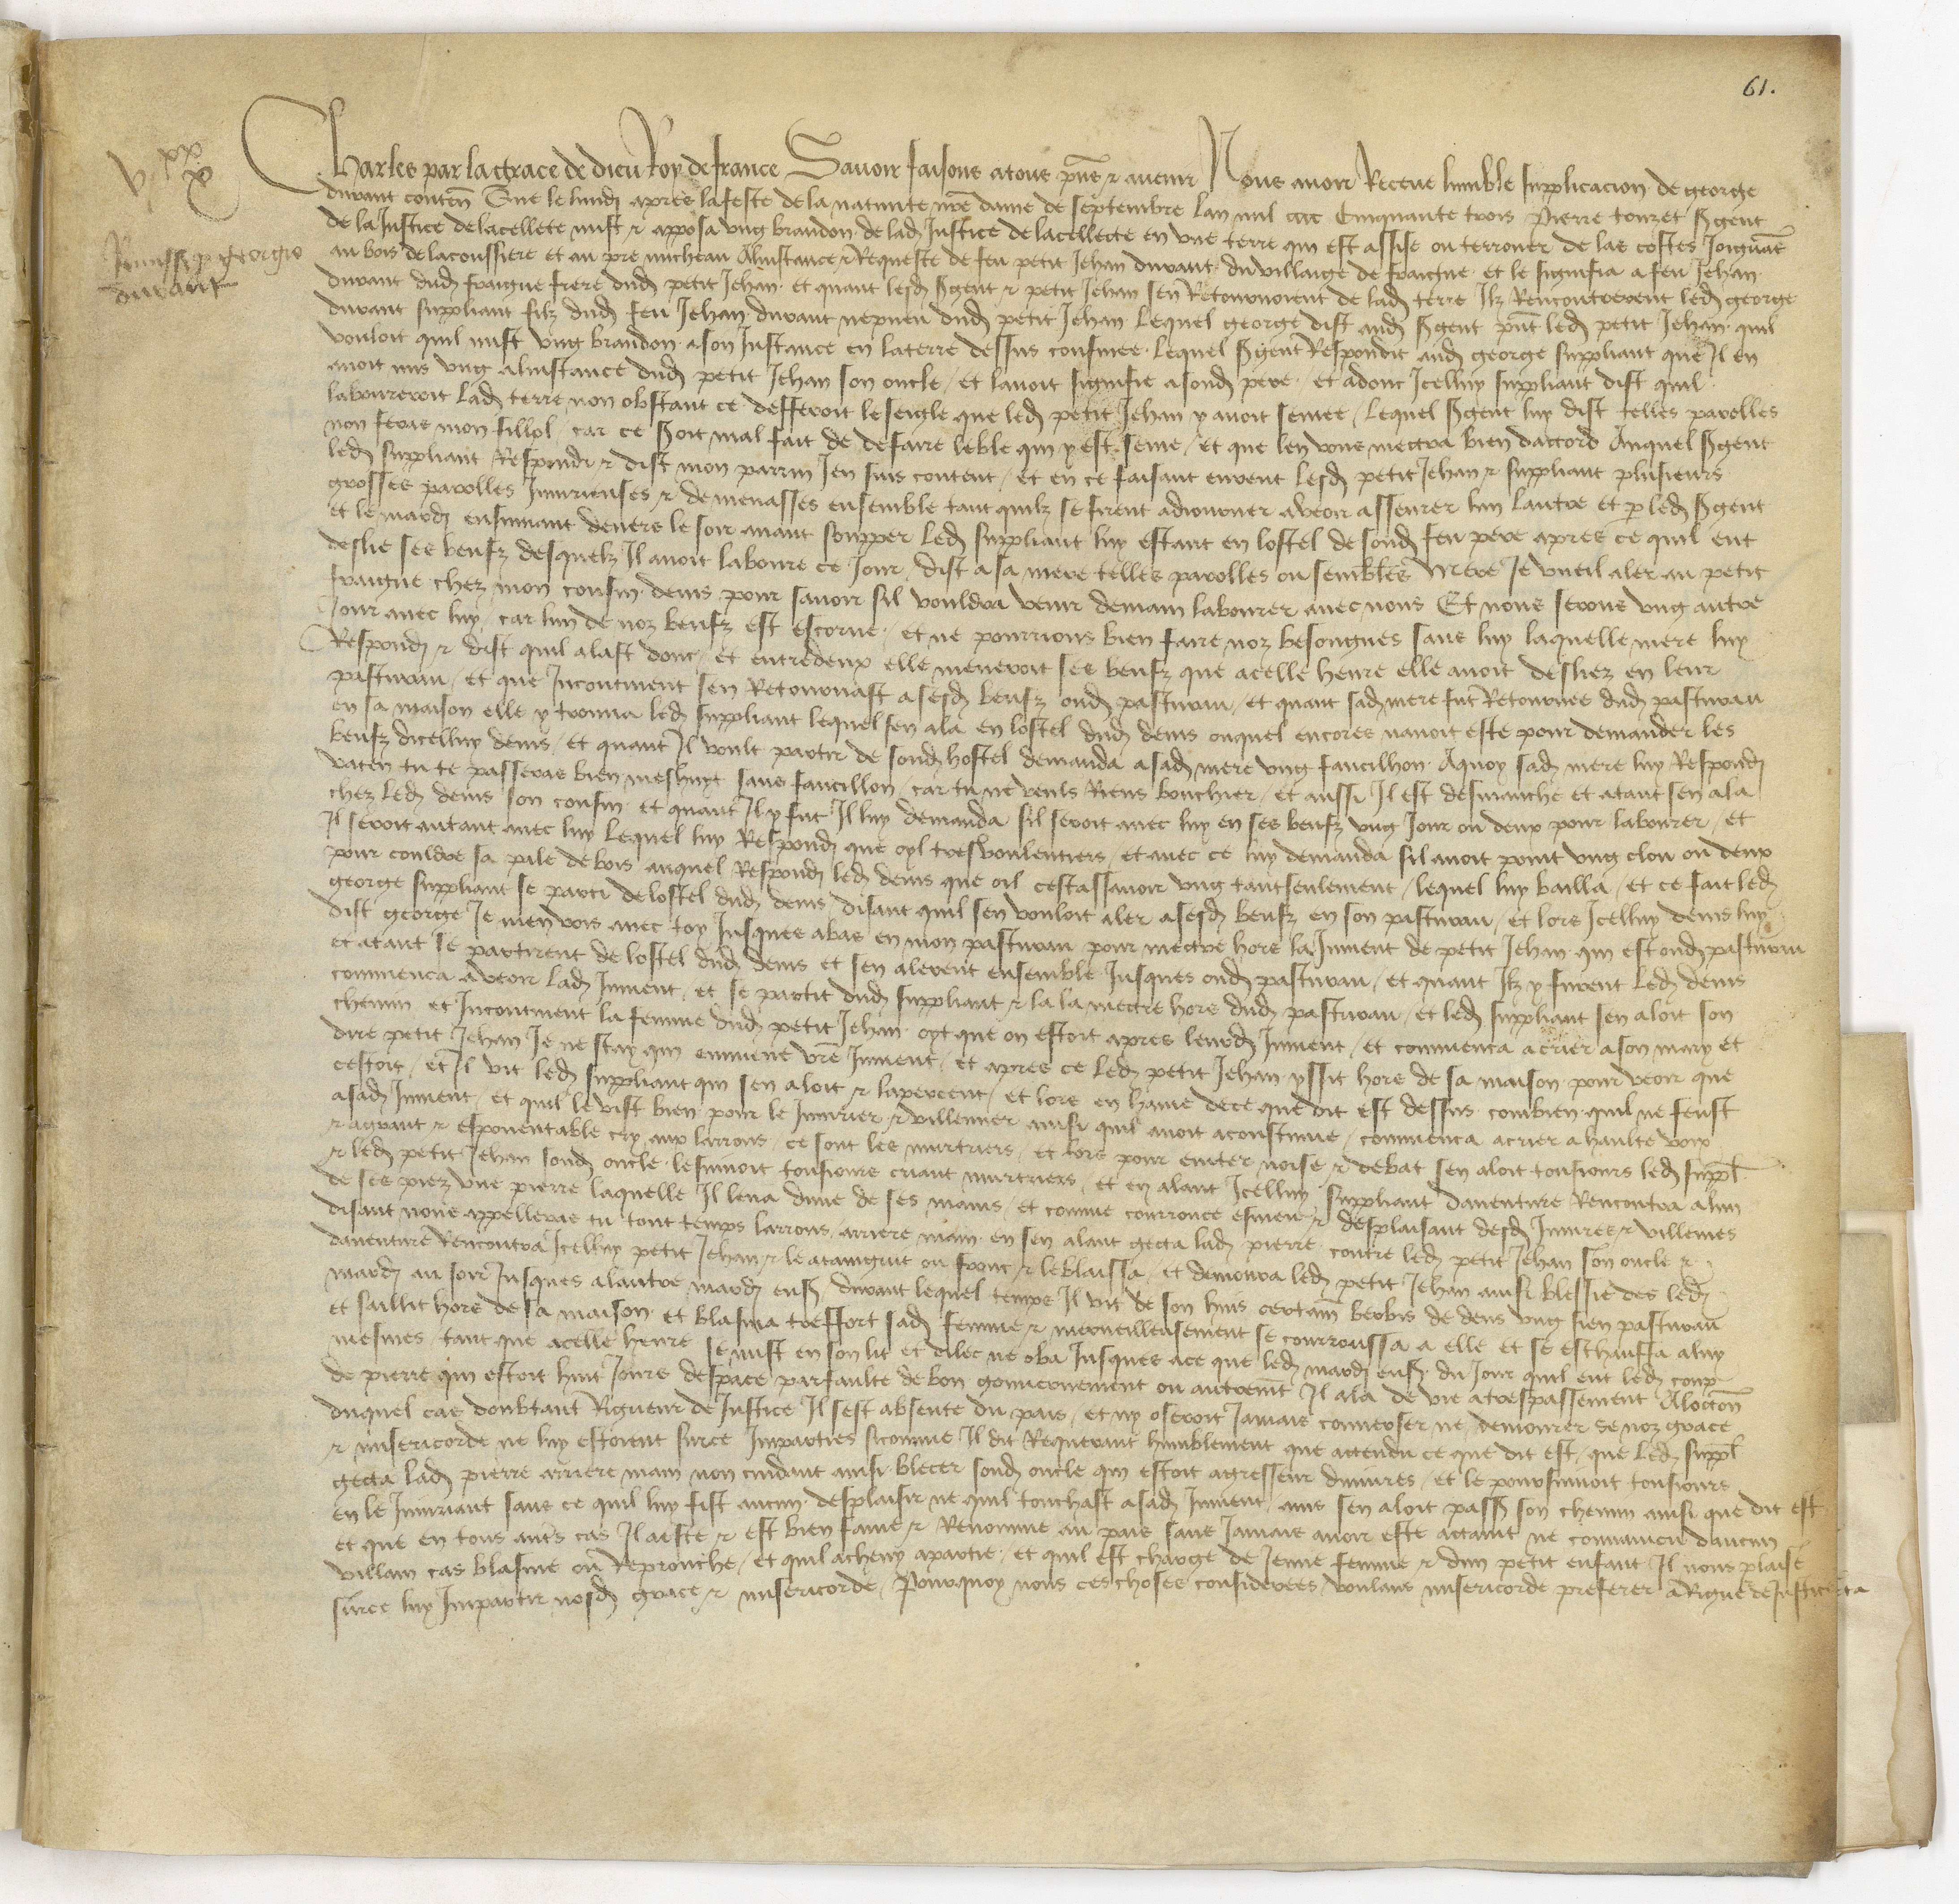 61.
V xx x
Charles par la grace de dieu Roy de france Savoir faisons a tous pns & avenir Nous avoir Receue humble supplicacion de george
Remissio georgio
durant
durant conten Que le lundi apres la feste de la nativite nre dame de septembre lan mil cccc Cinquante trois Pierre touzet sgent
de la Justice de lacellete mist & apposa ung brandon de lad Justice de lacellecte en une terre qui est assise ou terrouer de las costes Joignant
au bois de lacoussiere et au pre micheau A linstance & Requeste de feu petit Jehan durant du villaige de fraigne et le signifia a feu Jehan
durant dud fraigne frere dud petit Jehan et quant lesd sgent & petit Jehan sen Retournoient de lad terre Ilz Rencontrerent led george
durant suppliant filz dud feu Jehan durant nepveu dud petit Jehan Lequel george dist aud sgent pnt led petit Jehan quil
vouloit quil mist ung brandon a son Instance en la terre dessus confinee Lequel sgent Respondit aud george suppliant que Il en
avoit mis ung a linstance dud petit Jehan son oncle / et lavoit signifie a sond pere / et adonc Icelluy suppliant dist quil
laboureroit lad terre non obstant ce defferoit le seigle que led petit Jehan y avoit semee / Lequel sgent luy dist telles parolles
non feras mon fillol car ce soit mal fait de defaire le ble qui y est seme / et que len vous mectra bien daccord Auquel sgent
led suppliant Respondi & dist mon parrin Jen suis content / et en ce faisant eurent lesd petit Jehan & suppliant plusieurs
grosses parolles Injurieuses & de menasses ensemble tant quilz se firent adjourner a veoir asseurer lun lautre et p led sgent
et le mardi ensuivant devers le soir avant soupper led suppliant luy estant en lostel de sond feu pere apres ce quil eut
deslie ses beufz desquelz Il avoit laboure ce Jour dist a sa mere telles parolles ou semblables Mere Je vueil aler au petit
fraigne chez mon cousin denis pour savoir sil vouldra venir demain labourer avec nous Et nous serons ung autre
Jour avec luy car lun de noz beufz est escorne / et ne pourrions bien faire noz besongnes sans luy laquelle mere luy
Respondi & dist quil alast donc / et entredeux elle meneroit ses beufz que a celle heure elle avoit desliez en leur
pasturau / et que Incontinent sen Retournast a sesd beufz oud pasturau / et quant sad mere fut Retournee dud pasturau
en sa maison elle y trouva led suppliant lequel sen ala en lostel dud denis ouquel encores navoit este pour demander les
beufz dicelluy denis / et quant Il voult partir de sond hostel demanda a sad mere ung faucilhon Aquoy sad mere luy Respondi
vaten tu te passeras bien meshuyt sans faucillon / car tu ne veuls Riens bouchier / et aussi Il est desmanche et atant sen ala
chez led denis son cousin et quant Il y fut Il luy demanda sil seroit avec luy en ses beufz ung Jour ou deux pour labourer / et
Il seroit autant avec luy Lequel luy Respondi que oyl tres voulentiers / et avec ce luy demanda sil avoit point ung clou ou deux
pour couldre sa pile de bois auquel Respondi led denis que oil cestassavoir ung tantseulement / lequel luy bailla / et ce fait led
george suppliant se parti de lostel dud denis disant quil sen vouloit aler a sesd beufz en son pasturau / et lors Icelluy denis luy
dist george Je men vois avec toy Jusques abas en mon pasturau pour mectre hors la Jument de petit Jehan qui est oud pasturau
et atant se partirent de lostel dud denis et sen alerent ensemble Jusques oud pasturau / et quant Ilz y furent led denis
commenca a veoir lad Jument / et se partit dud suppliant & la la mectre hors dud pasturau / et led suppliant sen aloit son
chemin et Incontinent la femme dud petit Jehan oyt que on estoit apres leurd Jument / et commenca a crier a son mary et
dire petit Jehan Je ne scay qui emmene vre Jument / et apres ce led petit Jehan yssit hors de sa maison pour veoir que
cestoit / et Il vit led suppliant qui sen aloit & lapercent / et lors en haine de ce que dit est dessus combien quil ne feust
a sad Jument / et quil le vist bien pour le Injurier & villenner ainsi quil avoit acoustume / commenca a crier a haulte voix
& agrant & espouentable cry aux larrons ce sont les murtriers / et lors pour eviter noise & debat sen aloit tousiours led suppl
& led petit Jehan sond oncle le suivoit tousiours criant murtriers / et en alant Icelluy suppliant daventure Rencontra a lun
de ses piez une pierre laquelle Il leva dune de ses mains / et comme courrouce esmeu & desplaisant desd Injures & villenies
disant nous appelleras tu tout temps larrons arriere main en sen alant gecta lad pierre contre led petit Jehan son oncle &
daventure Rencontra Icelluy petit Jehan & le ataingnit ou front & le blaissa / et demoura led petit Jehan ainsi blessie des led
mardi au soir Jusques a lautre mardi ens / durant lequel temps Il vit de son huis certain brebis de dens ung sien pasturau
et saillit hors de sa maison et blasma treffort sad femme & merveilleusement se courroussa a elle et se eschauffa a luy
mesmes tant que a celle heure se mist en son lit et dilec ne oba Jusques a ce que led mardi ens du Jour quil eut led coup
de pierre qui estoit huit Jours despace par faulte de bon gouvernement ou autremt Il ala de vie a trespassement Aloccon
duquel cas doubtant Rigueur de Justice Il sest absente du pais / et ny oseroit Jamais converser ne demourer se noz grace
& misericorde ne luy estoient surce Imparties sicomme Il dit Requerant humblement que actendu ce que dit est / que led suppl
gecta lad pierre arriere main non cuidant ainsi blecer sond oncle qui estoit agresseur dinjures / et le poursuivoit tousiours
en le Injuriant sans ce quil luy fist aucun desplaisir ne quil touchast a sad Jument / ains sen aloit pass son chemin ainsi que dit est
et que en tous autres cas Il a este & est bien fame & Renomme au pais sans Jamais avoir este actaint ne convaincu daucun
villain cas blasme ou Reprouche / et quil a cheny apartie / et quil est charge de Jeune femme & dun petit enfant Il nous plaise
surce luy Impartir nosd grace & misericorde / Pourquoy nous ces choses considerees voulans misericorde preferer a Rigue de Justice